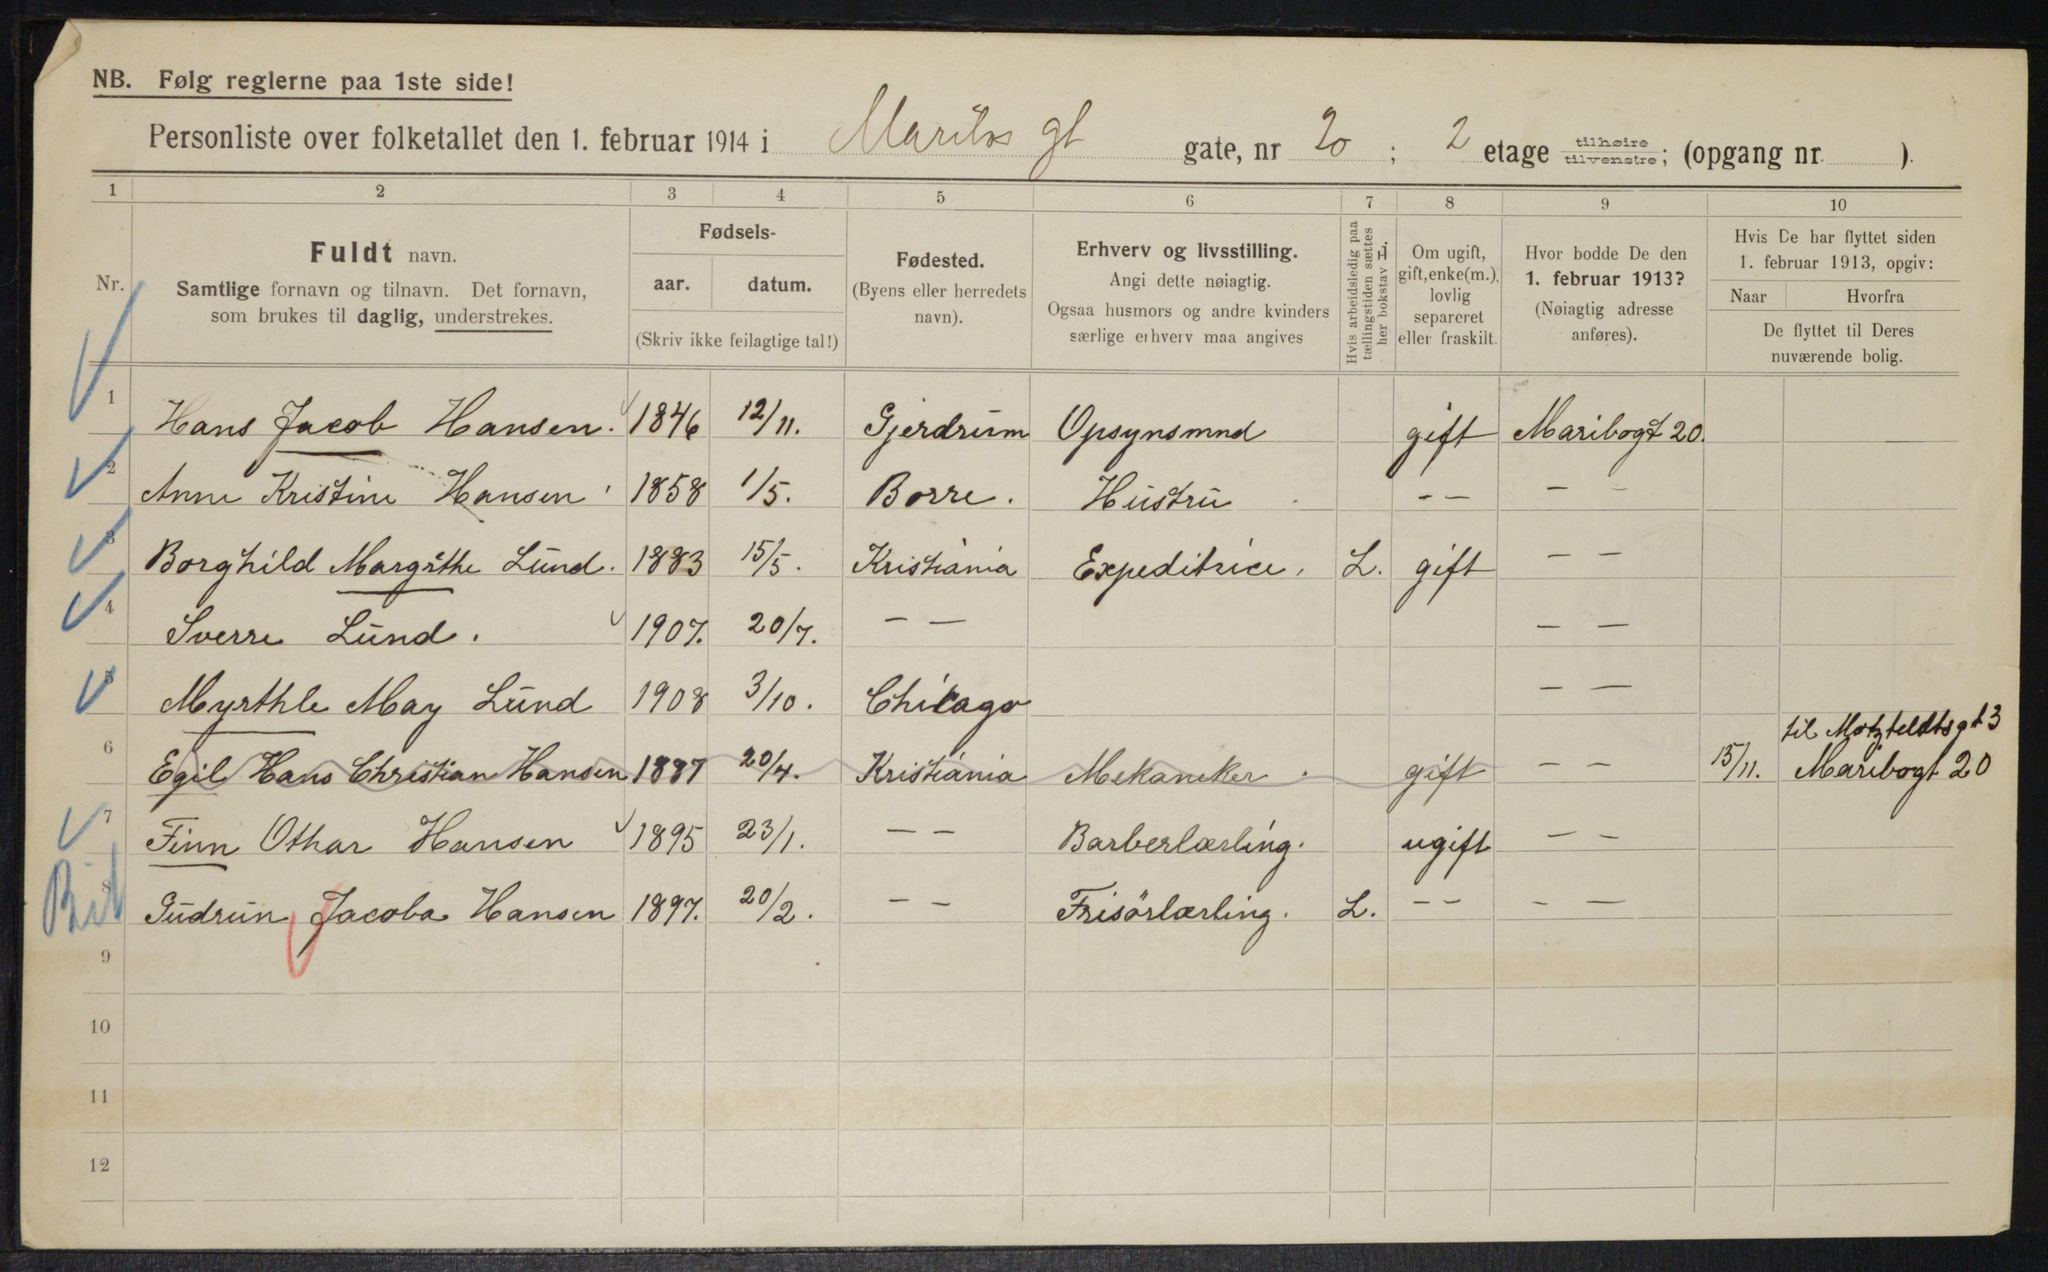 NB. Følg reglerne paa 1ste side!
Personliste over folketallet den 1. februar 1914 i Maribos gt gate, nr 20 ; 2 etage tilhøire tilvenstre; (opgang nr. ).
1 2 3 4 5 6 7 8 9 10
Nr.
Fuldt navn.
Samtlige fornavn og tilnavn. Det fornavn,
som brukes til daglig, understrekes.
Fødsels-
aar. datum.
(Skriv ikke feilagtige tal!)
Fødested.
(Byens eller herredets
navn).
Erhverv og livsstilling.
Angi dette nøiagtig.
Ogsaa husmors og andre kvinders
særlige erhverv maa angives
Hvis arbeidsledig paa
tællingstiden sættes
her bokstav L.
Om ugift,
gift, enke(m.),
lovlig
separeret
eller fraskilt.
Hvor bodde De den
1. februar 1913?
(Nøiagtig adresse
anføres).
Hvis De har flyttet siden
1. februar 1913, opgiv:
Naar Hvorfra
De flyttet til Deres
nuværende bolig.
1 Hans Jacob Hansen. 1846 12/11. Gjerdrum Opsynsmnd gift Maribogt 20.
2 Anne Kristine Hansen 1858 1/5. Borre. Hustru — — — —
3 Borghild Margrthe Lund. 1883 15/5. Kristiania Expeditrice. L. gift — —
4 Sverre Lund. 1907. 20/7. — — — —
5 Myrthle May Lund 1908 3/10. Chicago — —
til Motzfeldtsgt 3
6 Egil Hans Christian Hansen 1887 20/4. Kristiania Mekaniker. gift — — 15/11. Maribogt 20
7 Finn Othar Hansen 1895 23/1. — — Barberlærling. ugift — —
8 Gudrun Jacoba Hansen 1897. 20/2. — — Frisörlærling. L. — — — —
9
10
11
12